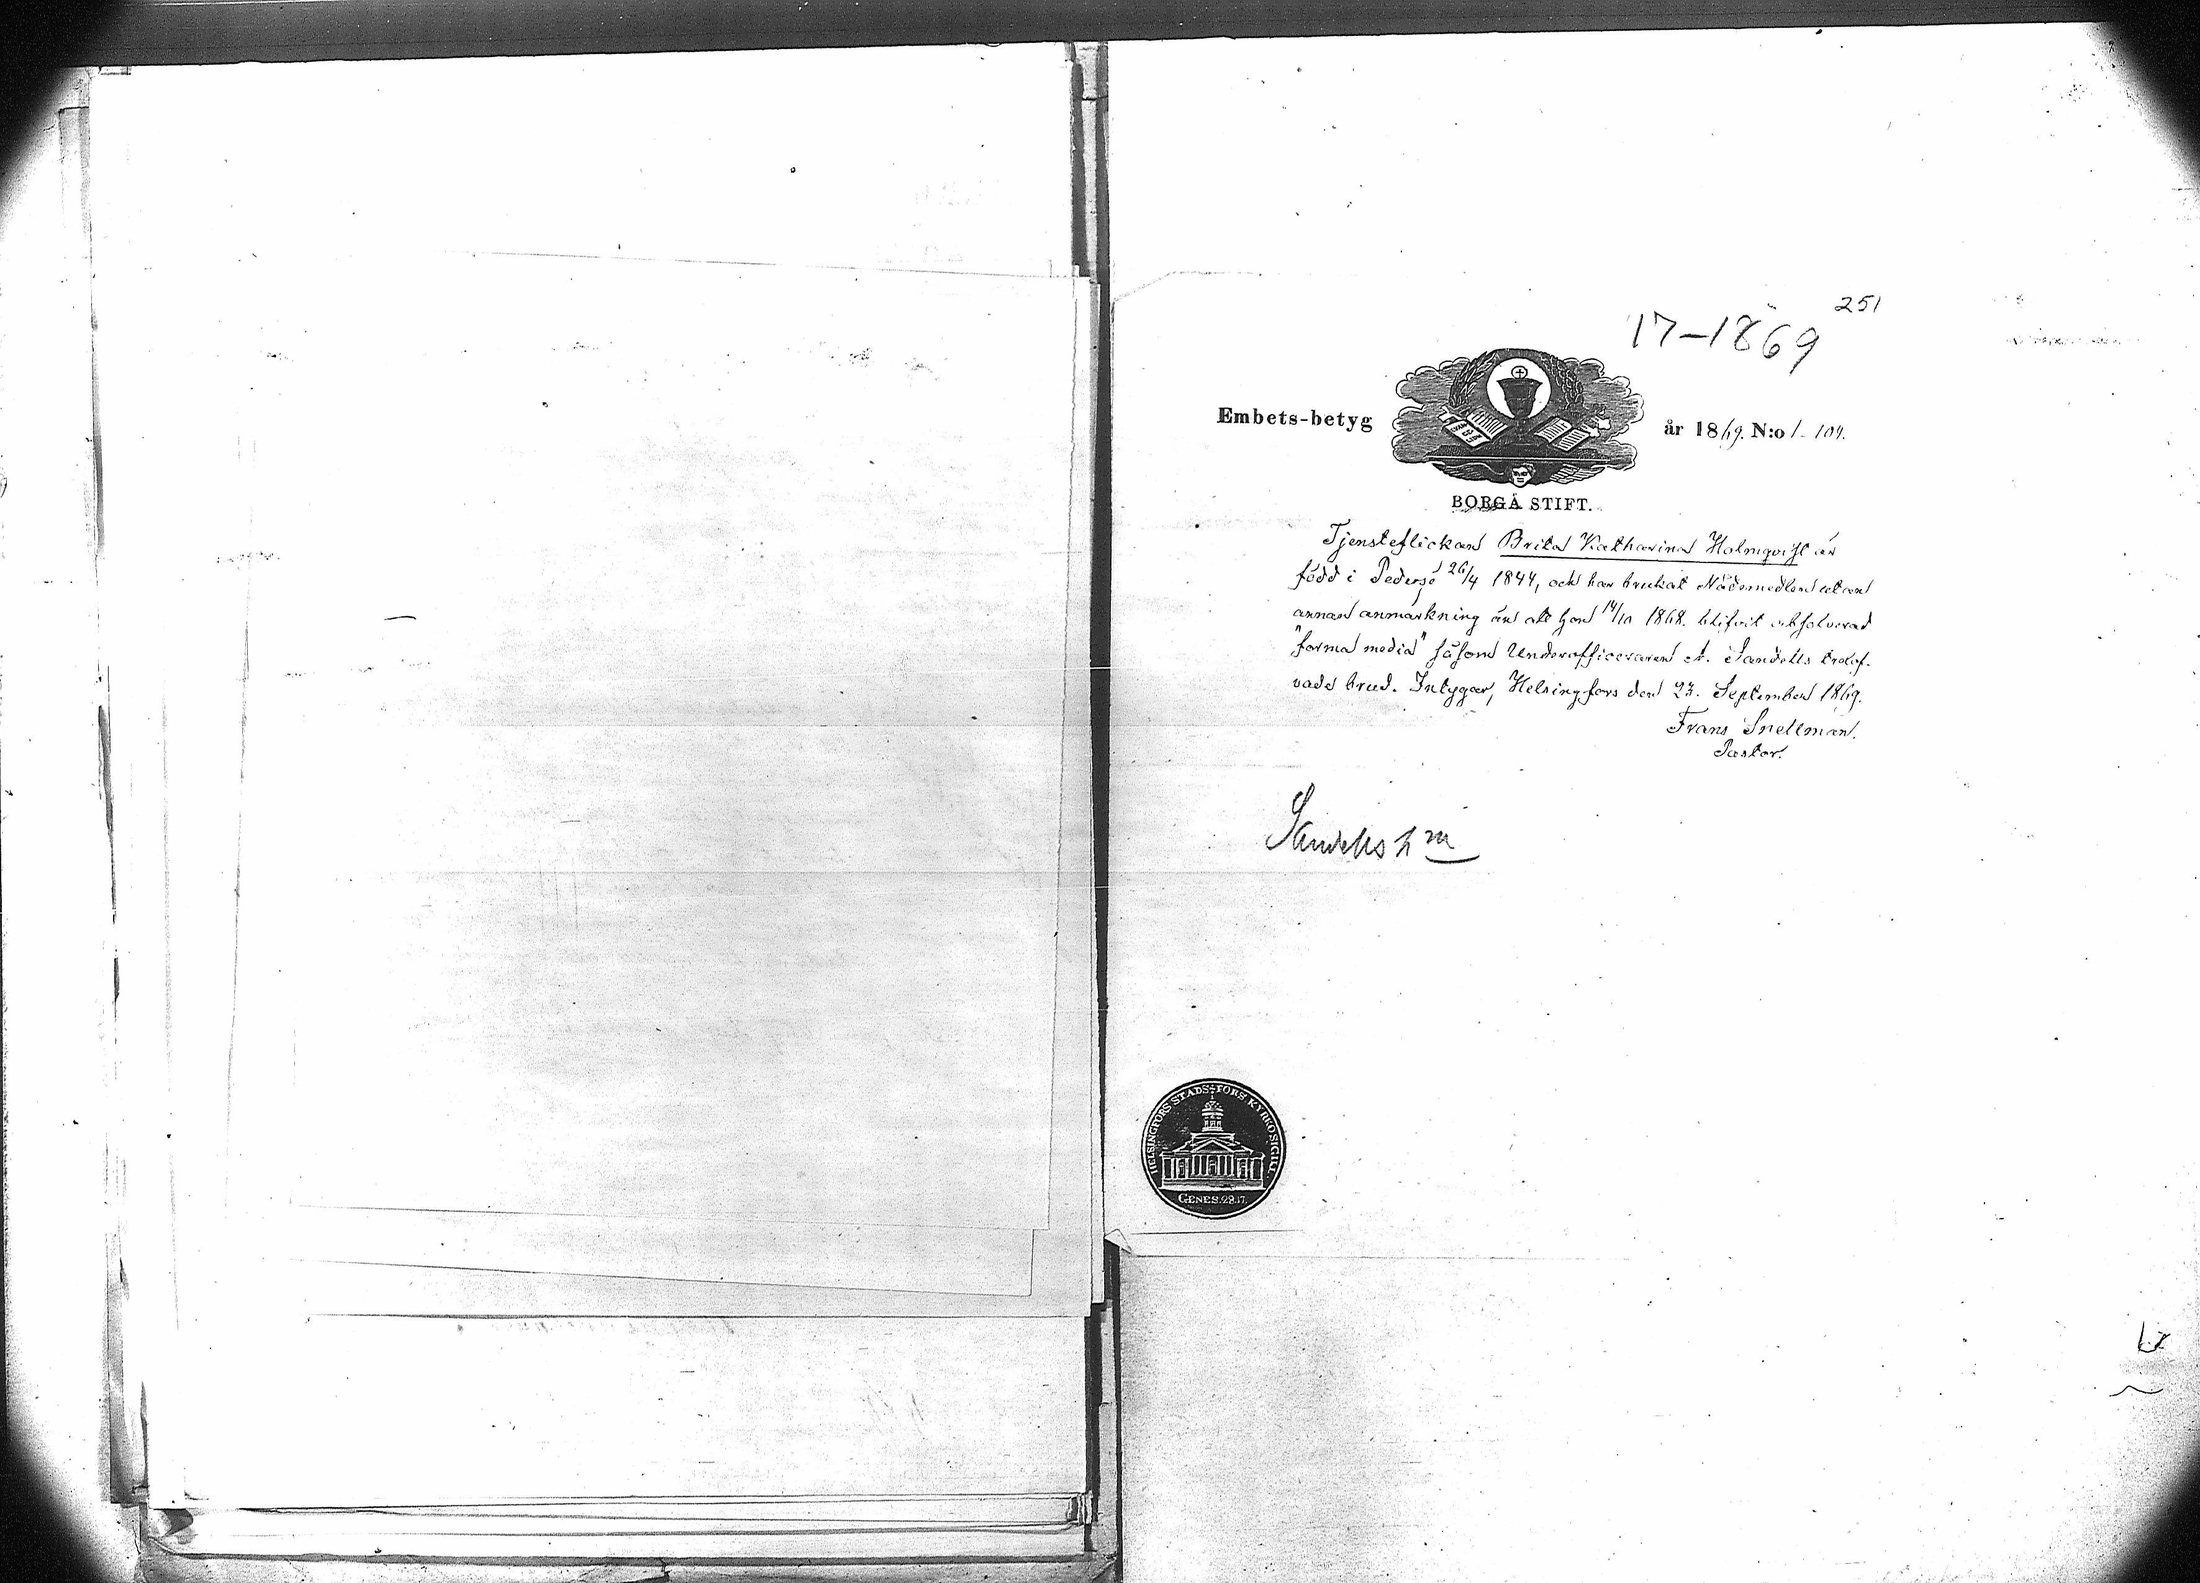 251
17-1869
Embets-betyg år 1869. N:o 1-104.
BORGÅ STIFT.
Tjensteflickan Brita Katharina Holmqvist är
född i Pedersö 26/4 1844, och har brukat Nådemedlen utan
annan anmärkning än att hon 14/10 1868. blifvit absolverad
"forma media" såsom Underofficeraren A. Sandells trolof-
vade brud. Intygar, Helsingfors den 23. September 1869.
Frans Snellman.
Pastor.
Sandells h m
HELSINGFORS STADS FÖRS. KYRKO SIGILL.
GENES. 28. 17.